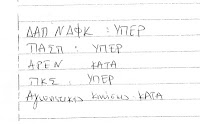 ΔΑΠ ΝΔΦΚ : ΥΠΕΡ
ΠΑΣΠ : ΥΠΕΡ
ΑΡΕΝ ΚΑΤΑ
ΠΚΣ : ΥΠΕΡ
Αγωνιστικές Κινήσεις ΚΑΤΑ